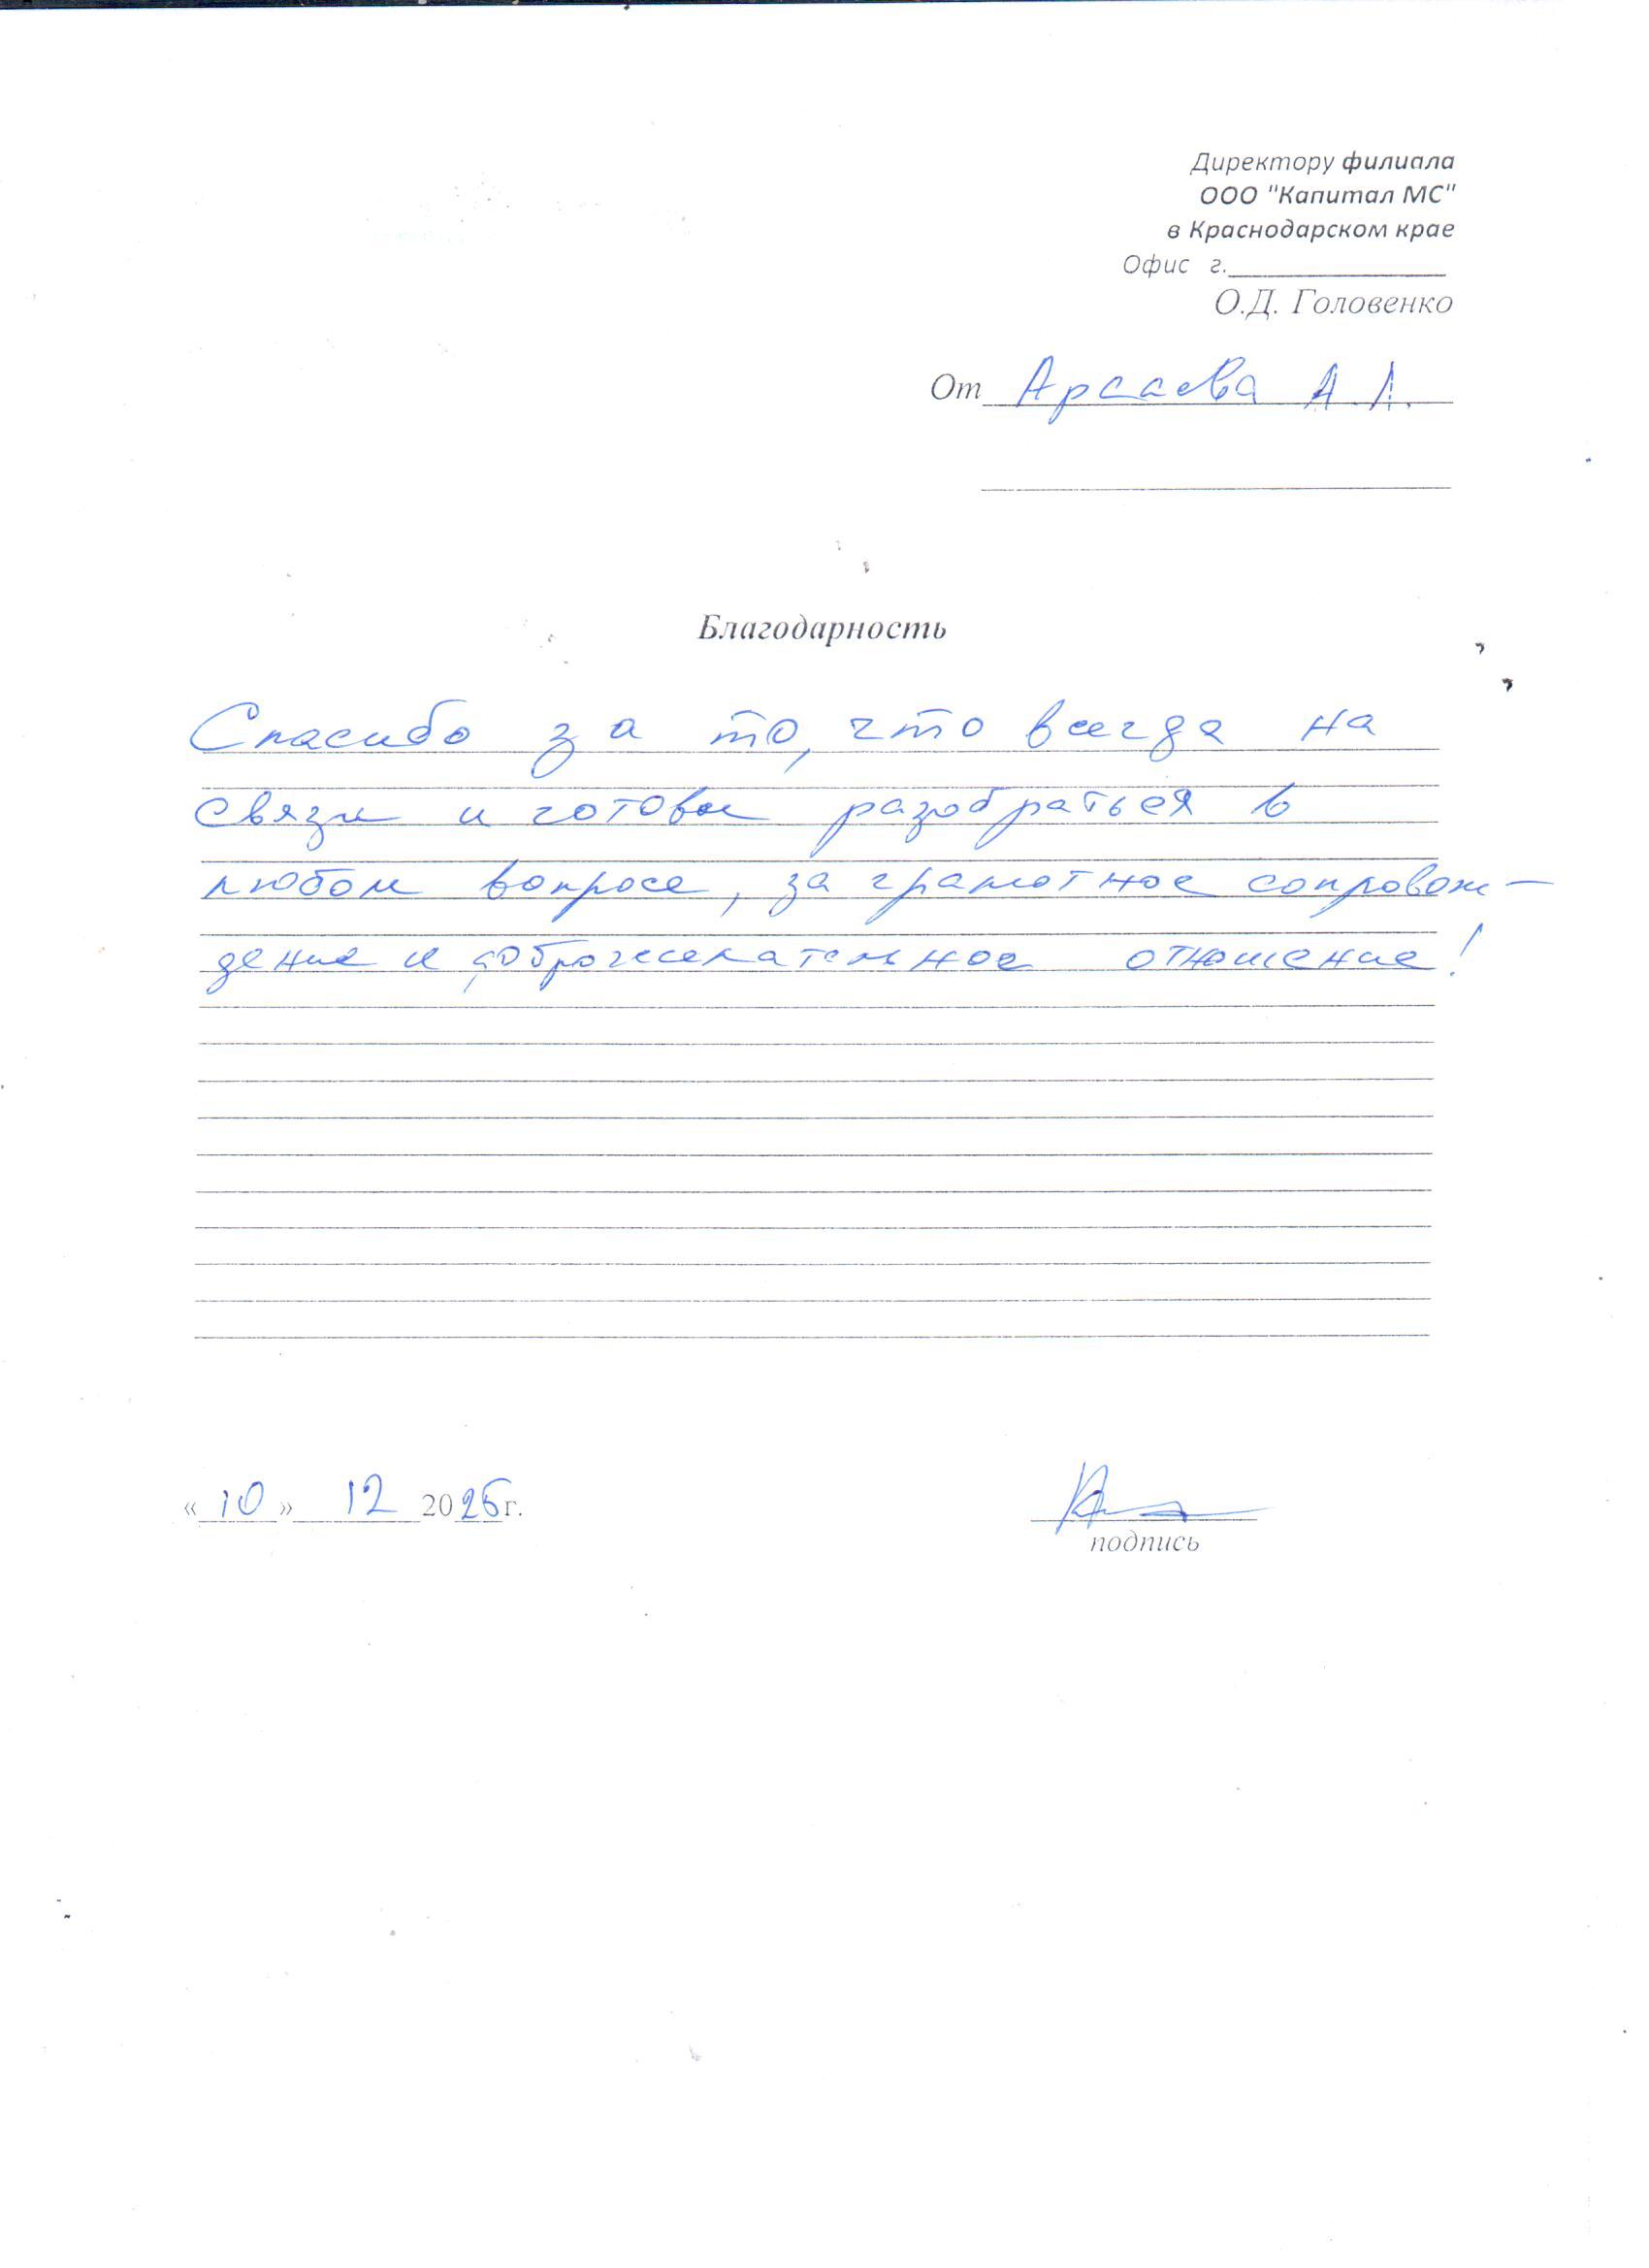 Директору филиала
ООО "Капитал МС"
в Краснодарском крае
Офис г.______________
О.Д. Головенко
От Арсаева А.А.
Благодарность
Спасибо за то, что всегда на
связи и готовы разобраться в
любом вопросе, за грамотное сопровож-
дение и доброжелательное отношение!
«10» 12 2025г.
подпись